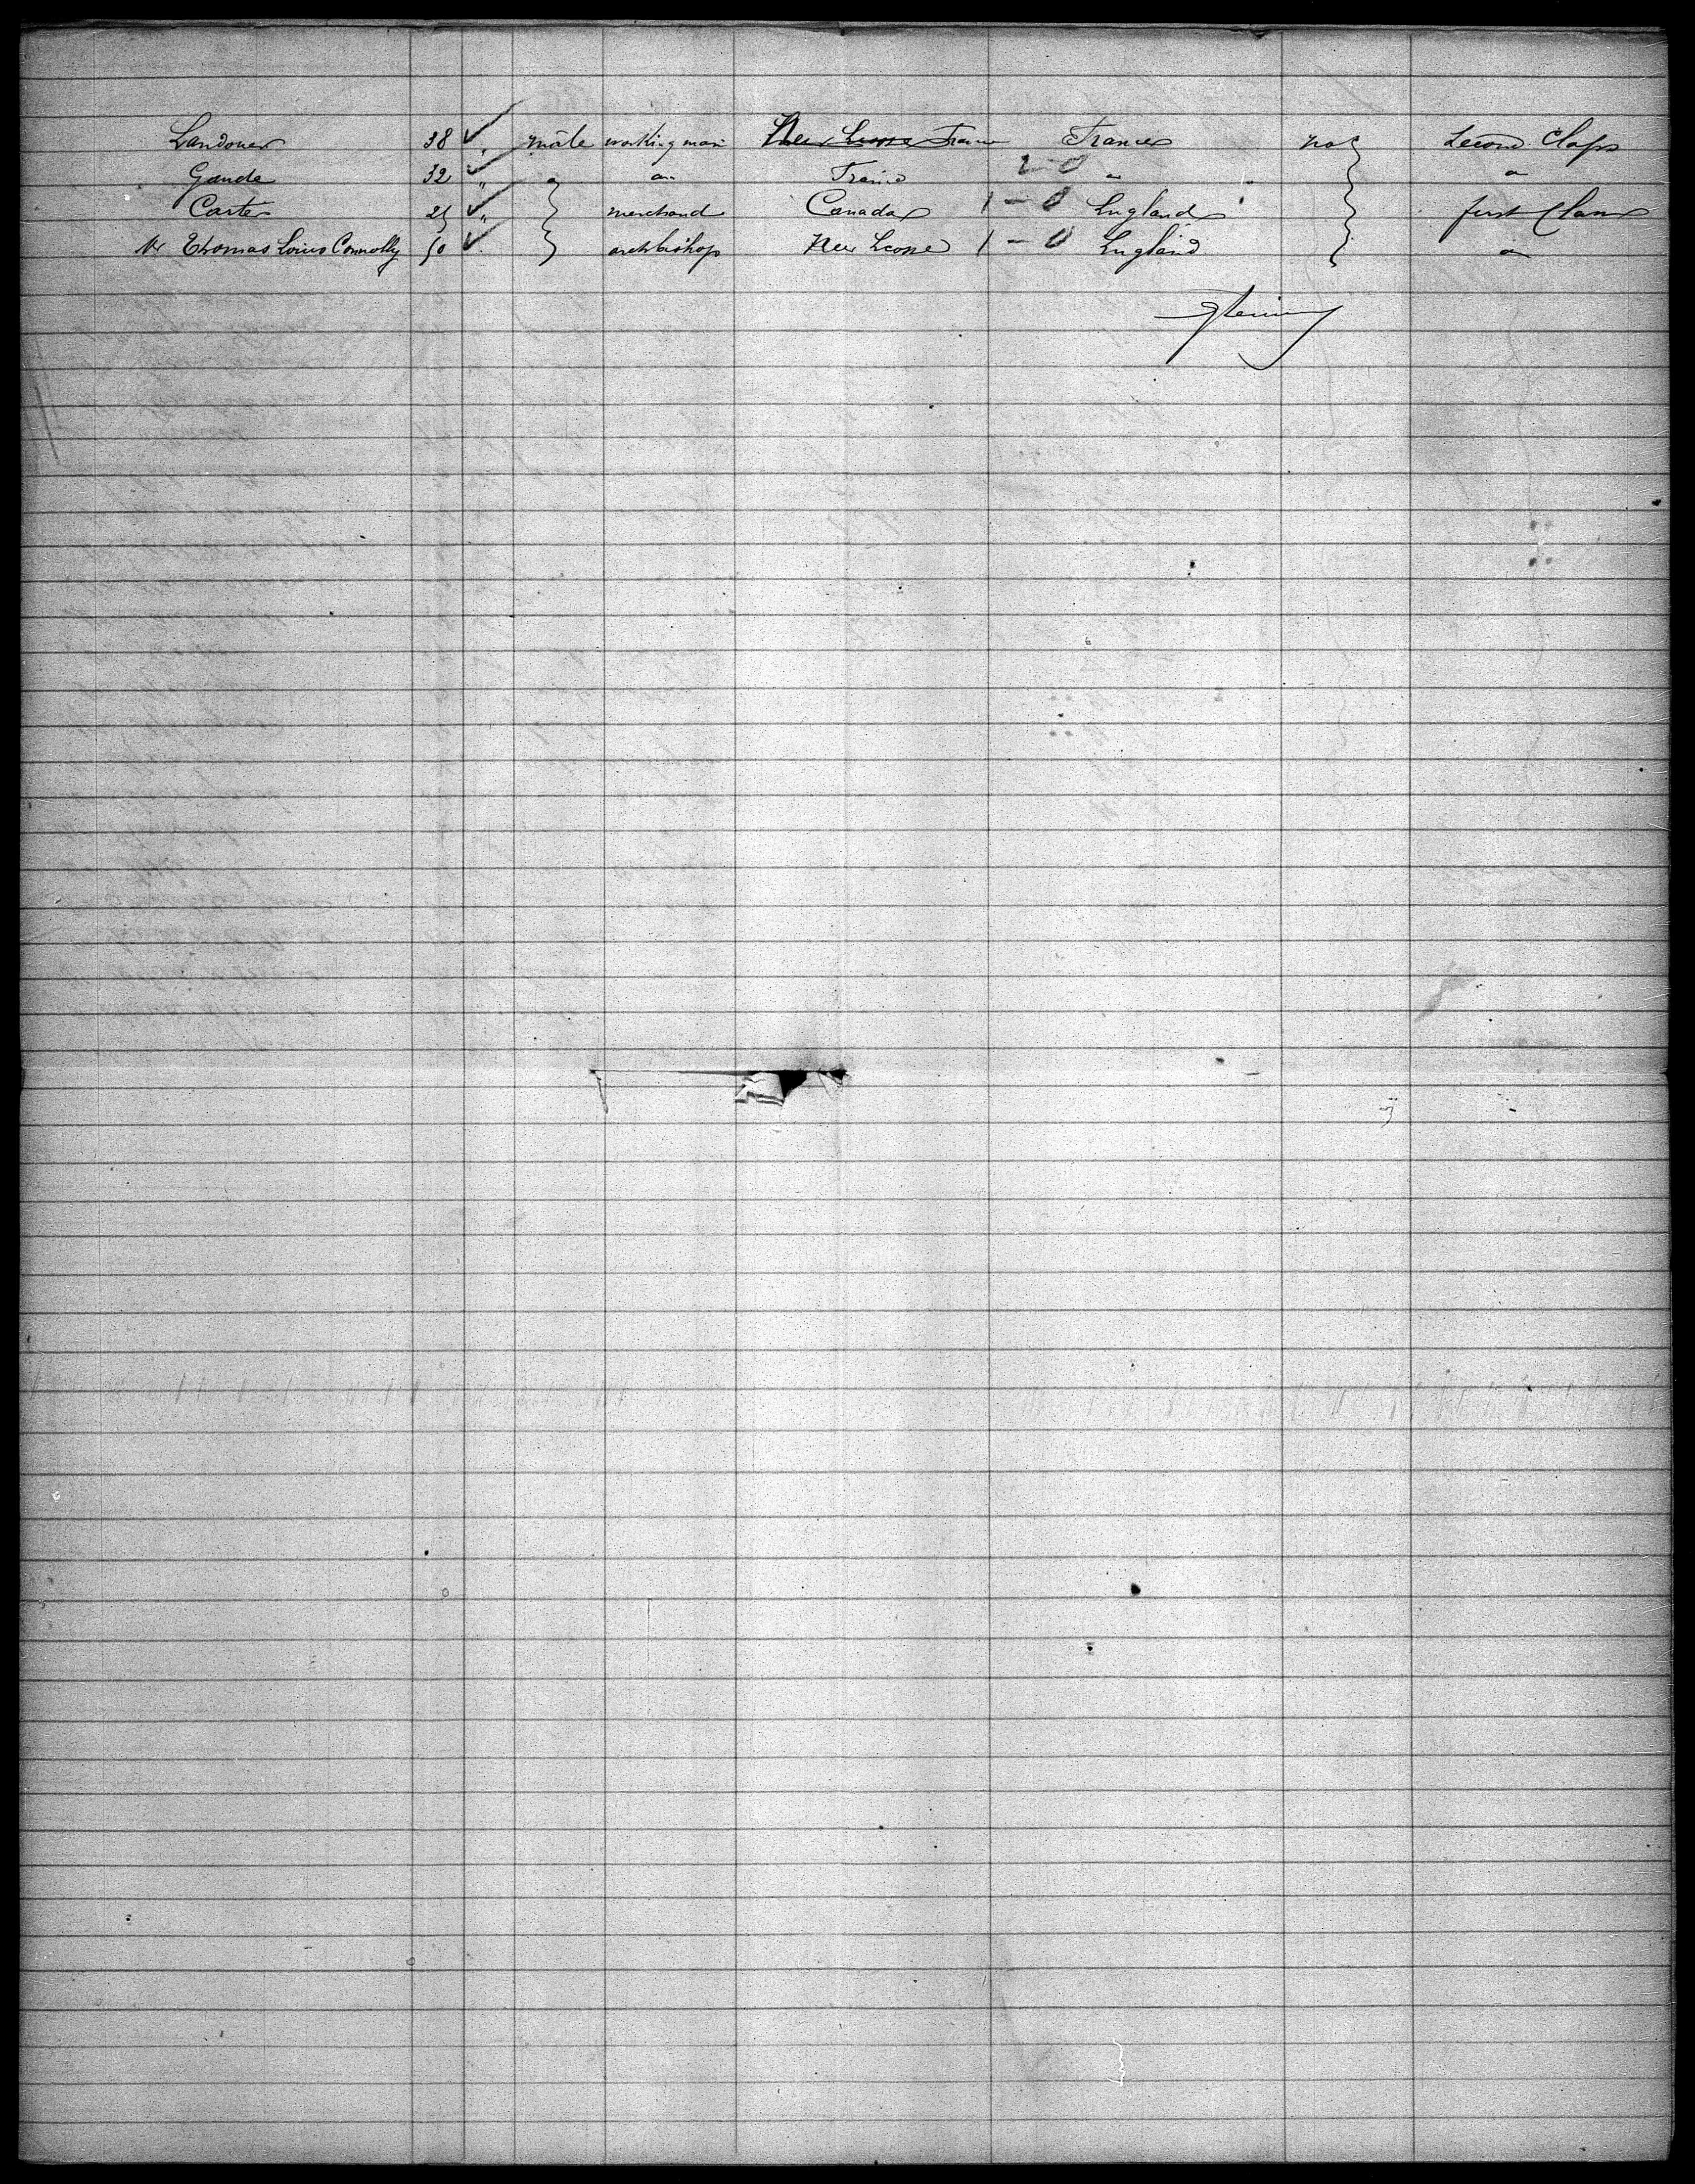 Landouer 38 " male working man France France no second Class
Gande 32 " " " France 2-0 " "
Carter 25 " merchand Canada 1-0 England first Class
Mr Thomas Louis Connolly 50 " archbishop New Ecosse 1-0 England "